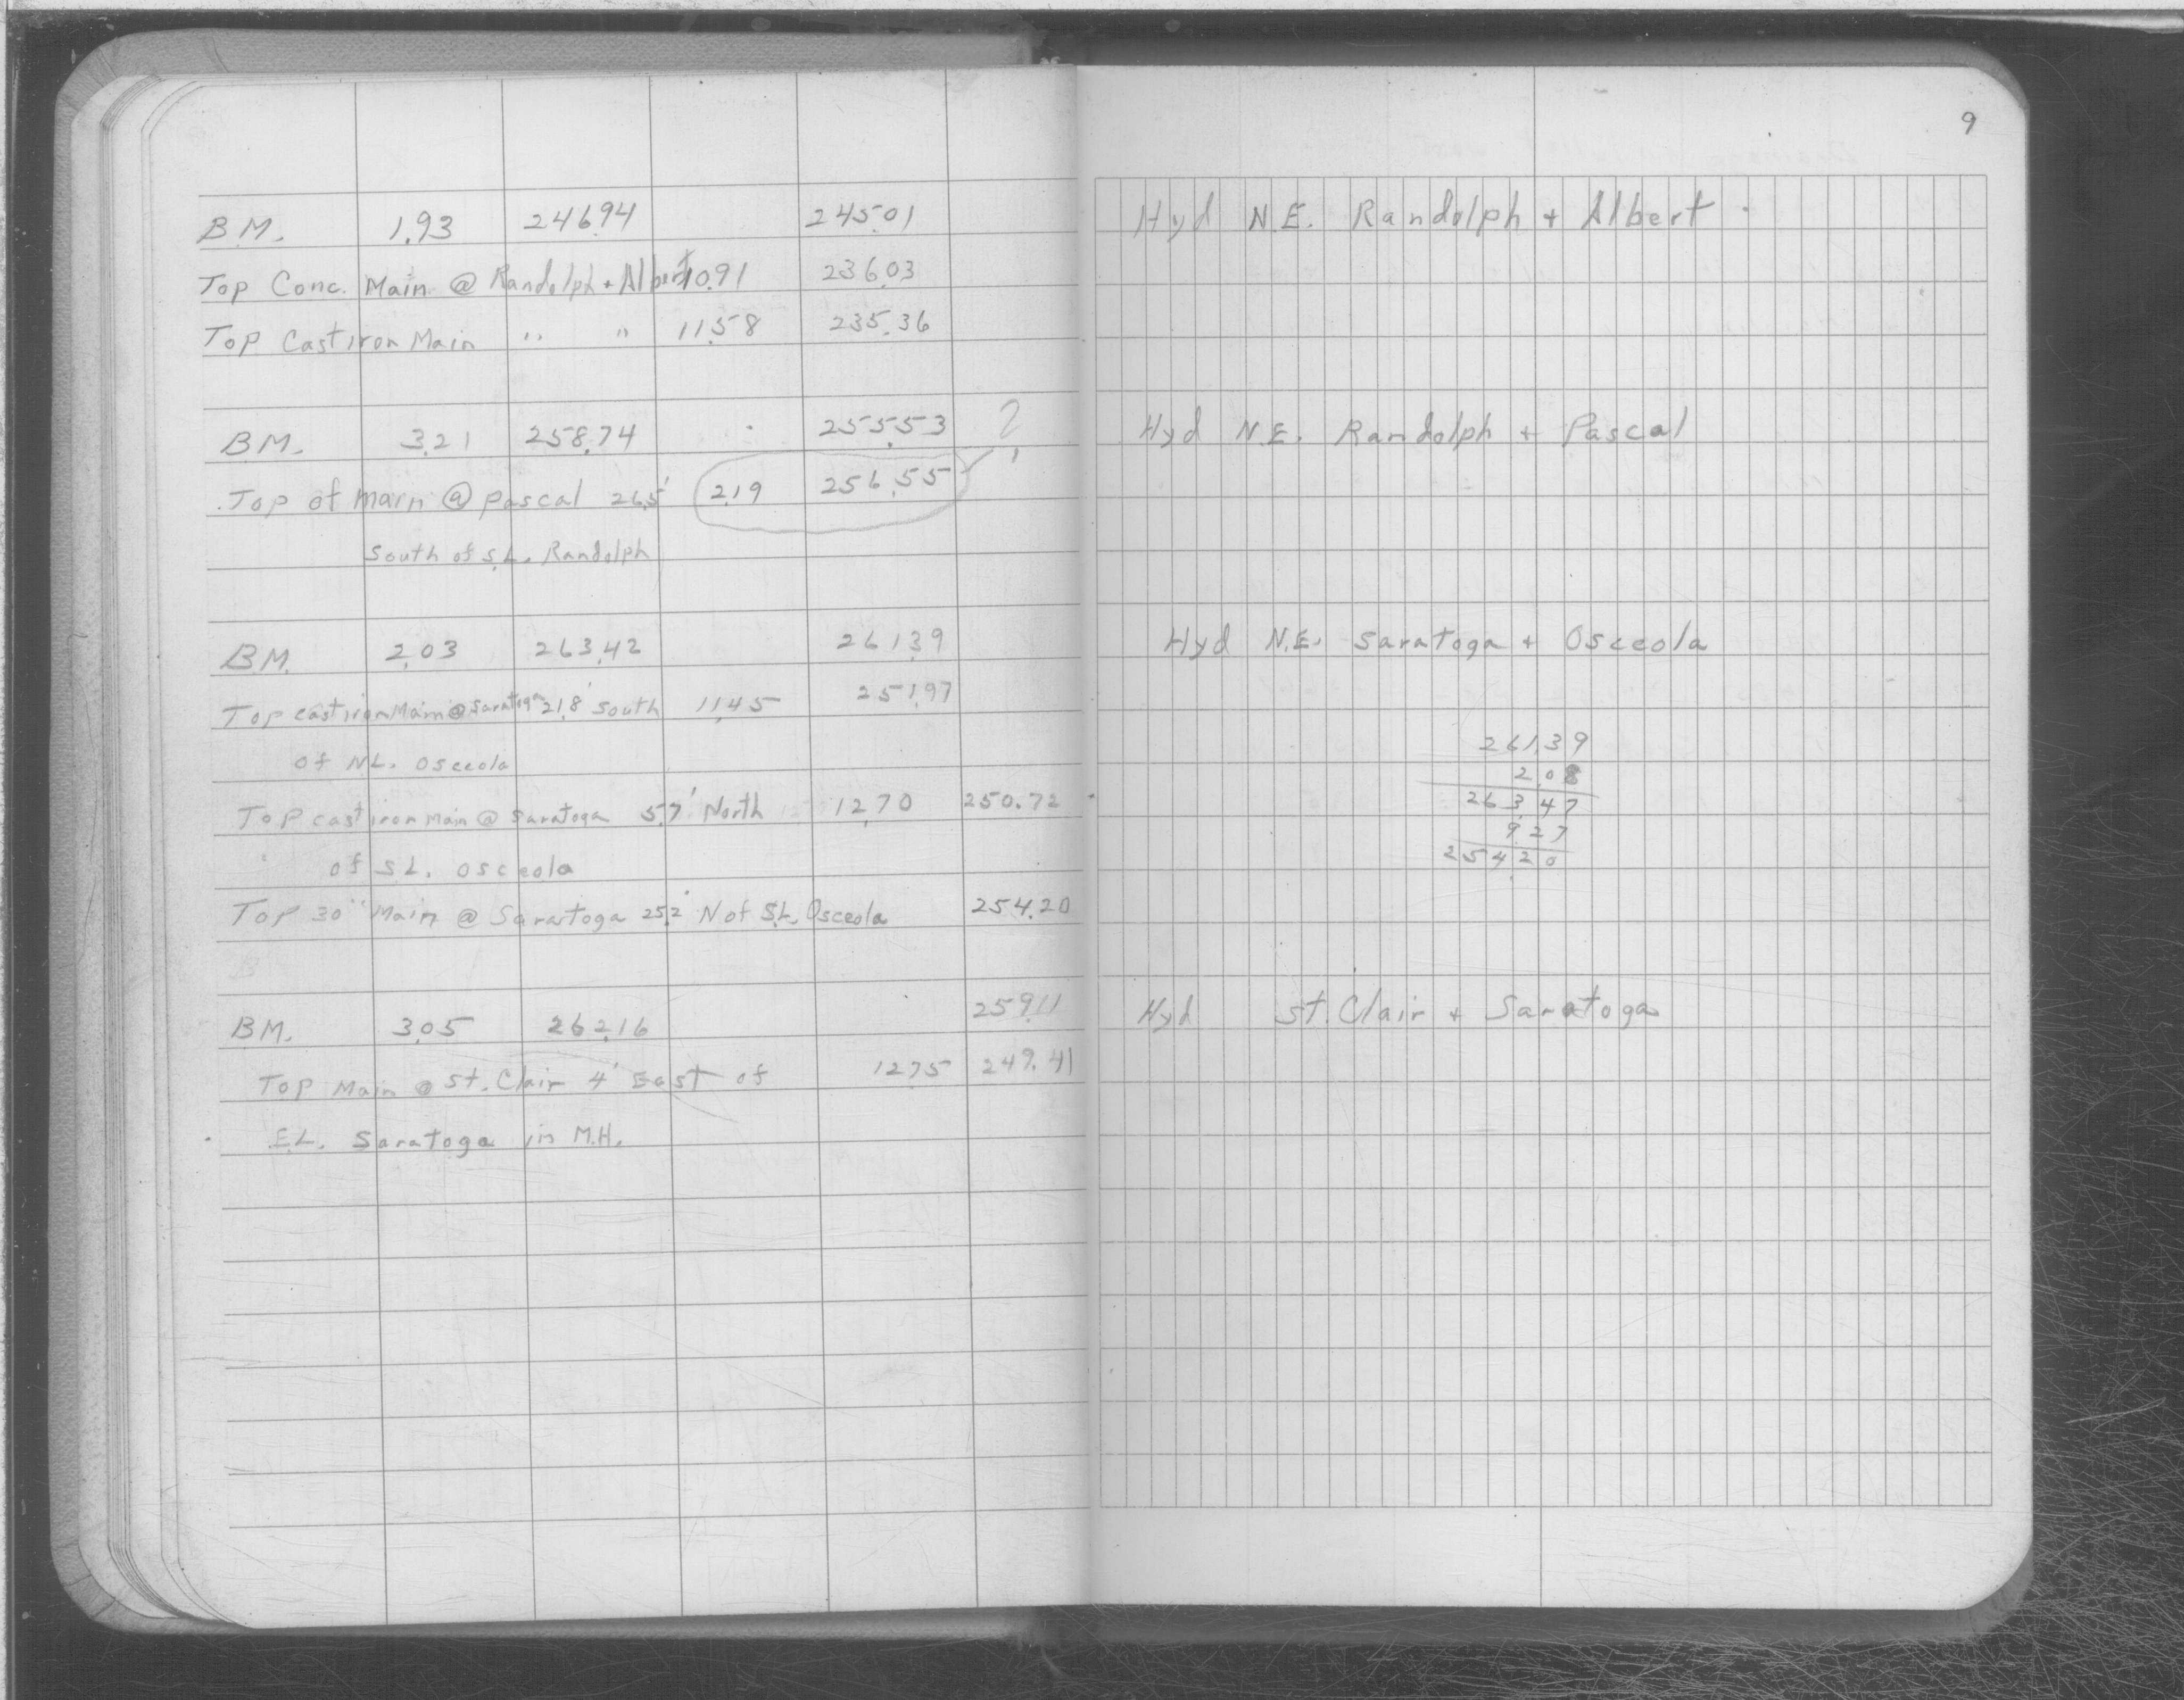 B.M. 1.93 246.94 245.01
Top Conc. Main @ Randolph + Albert 10.91 236.03
Top Cast iron Main " " 11.58 235.36
B.M. 3.21 258.74 255.53 ?
Top of main @ Pascal 26.5' 2.19 256.55
South of S.L. Randolph
B.M. 2.03 263.42 261.39
Top cast iron Main @ Saratoga 21.8' South 11.45 251.97
of N.L. Osceola
Top cast iron Main @ Saratoga 5.7' North 12.70 250.72
of S.L. Osceola
Top 30" Main @ Saratoga 25.2' N of S.L. Osceola 254.20
B.M. 3.05 262.16 259.11
Top Main @ St. Clair 4' East of 12.75 249.41
E.L. Saratoga in M.H.
9
Hyd N.E. Randolph + Albert
Hyd N.E. Randolph + Pascal
Hyd N.E. Saratoga + Osceola
261.39
2.08
263.47
9.27
254.20
Hyd St. Clair + Saratoga